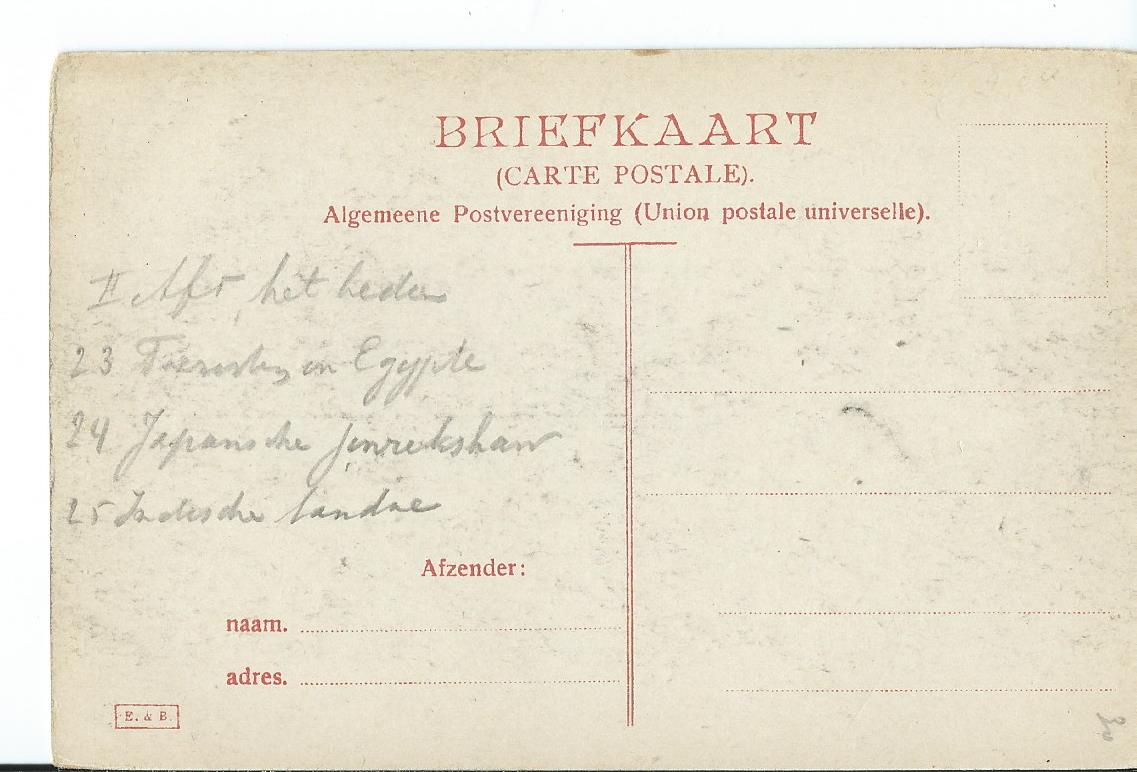 BRIEFKAART
(CARTE POSTALE).
Algemeene Postvereeniging (Union postale universelle).
II Afr het heden
23 Toeristen in Egypte
24 Japansche jinrickshaw
25 Indische landae
Afzender:
naam.
adres.
E. & B.